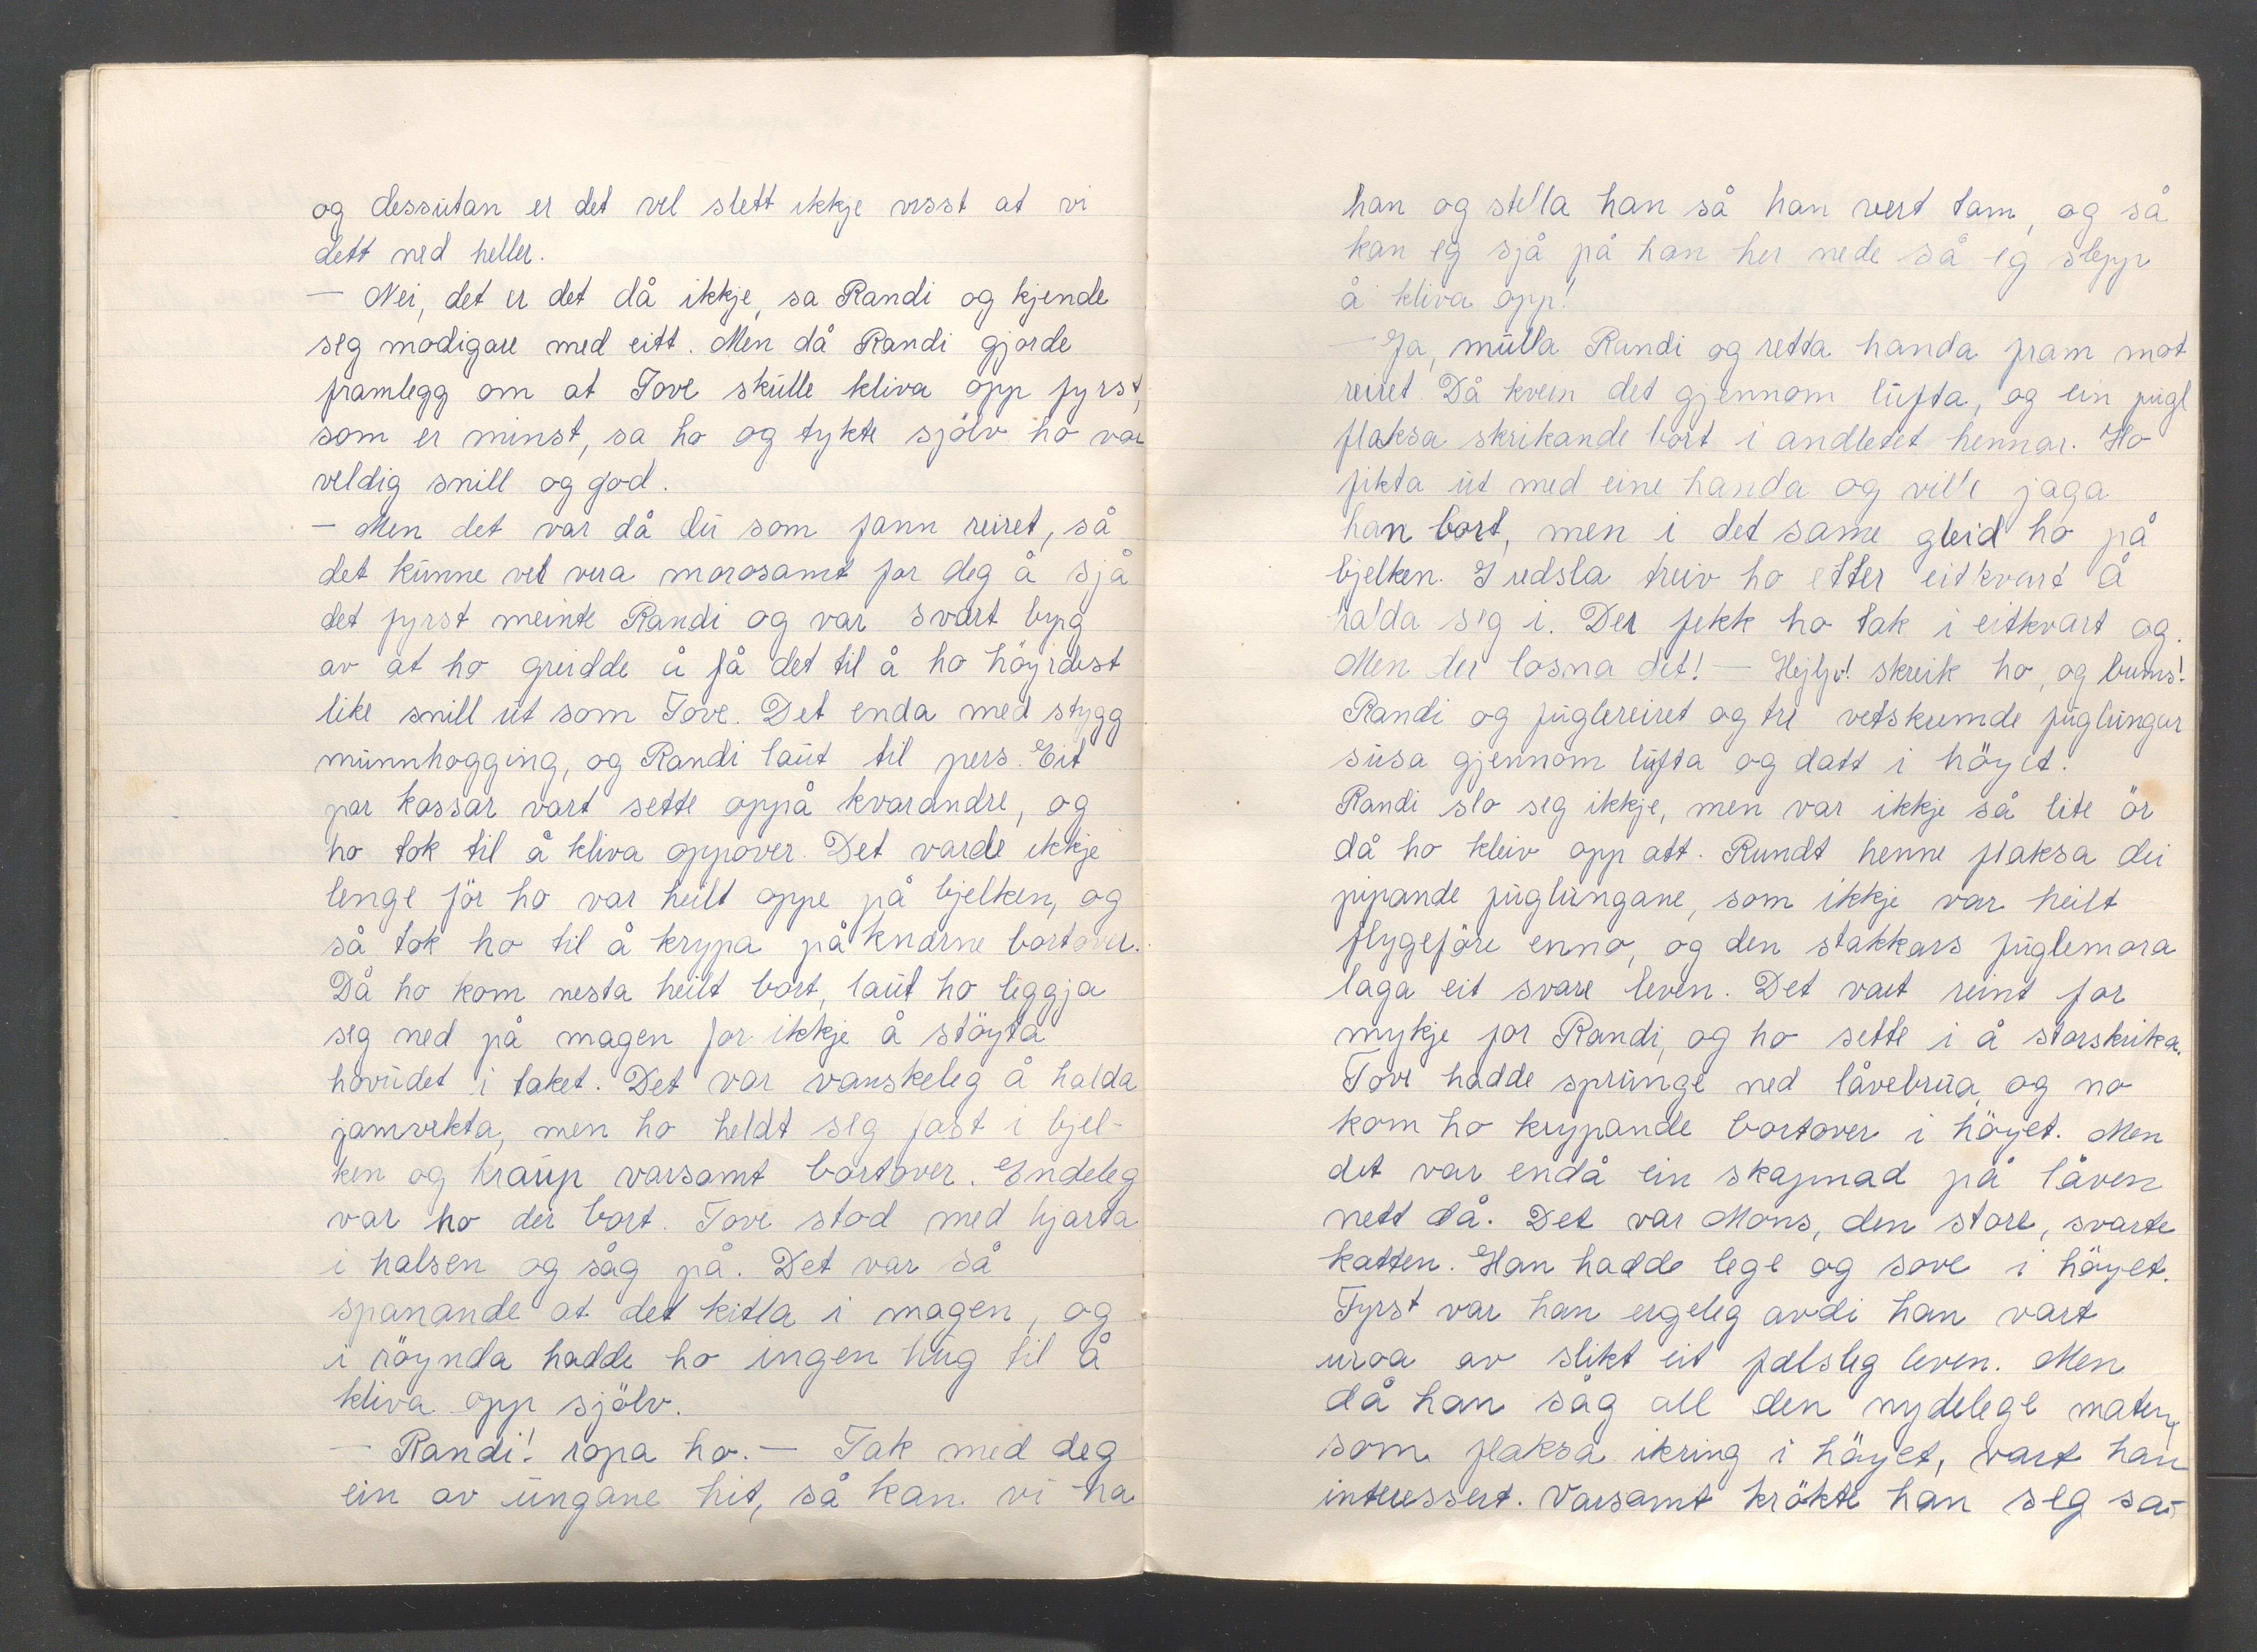 og dessutan er det vel slett ikkje visst at vi
dett ned heller.
— Nei, det er det då ikkje, sa Randi og kjende
seg modigare med eitt. Men då Randi gjorde
framlegg om at Tove skulle kliva opp fyrst,
som er minst, sa ho og tykte sjölv ho var
veldig snill og god.
— Men det var då du som fann reiret, så
det kunne vel vera morosamt for deg å sjå
det fyrst meinte Randi og var svært byrg
av at ho greidde å få det til å ho höyrdest
like snill ut som Tove. Det enda med stygg
munnhogging, og Randi laut til pers. Eit
par kassar vart sette oppå kvarandre, og
ho tok til å kliva oppover. Det varde ikkje
lenge för ho var heilt oppe på bjelken, og
så tok ho til å krypa på knærne bortover.
Då ho kom nesta heilt bort, laut ho leggja
seg ned på magen for ikkje å stöyta
hovudet i taket. Det var vanskeleg å halda
jamvekta, men ho heldt seg fast i bjel-
ken og kraup varsamt bortover. Endeleg
var ho der bort. Tove stod med hjarta
i halsen og såg på. Det var så
spanande at det kitla i magen, og
i röynda hadde ho ingen hug til å
kliva opp sjölv.
— Randi! ropa ho. — Tak med deg
ein av ungane hit, så kan vi ha
han og stella han så han vert tam, og så
kan eg sjå på han her nede så eg slepp
å kliva opp!
— Ja, mulla Randi og retta handa fram mot
reiret. Då kvein det gjennom lufta, og ein fugl
flaksa skrikande bort i andletet hennar. Ho
fikta ut med eine handa og ville jaga
han bort, men i det same gleid ho på
bjelken. I redsla treiv ho etter eitkvart å
halda seg i. Der fekk ho tak i eitkvart og.
Men der losna det! — Hejlp! skreik ho, og bums!
Randi og fuglereiret og tre vetskremde fuglungar
susa gjennom lufta og datt i höyet.
Randi slo seg ikkje, men var ikkje så lite ör
då ho kleiv opp att. Rundt henne flaksa dei
pipande fuglungane, som ikkje var heilt
flygeföre enno, og den stakkars fuglemora
laga eit svare leven. Det vart reint for
mykje for Randi, og ho sette i å storskrika.
Tove hadde sprunge ned låvebrua, og no
kom ho krypande bortover i höyet. Men
det var endå ein skapnad på låven
nett då. Det var Mons, den store, svarte
katten. Han hadde lege og sove i höyet.
Fyrst var han ergeleg avdi han vart
uroa av slikt eit fælsleg leven. Men
då han såg all den nydelege maten,
som flaksa ikring i höyet, vart han
interessert. Varsamt krökte han seg sa-